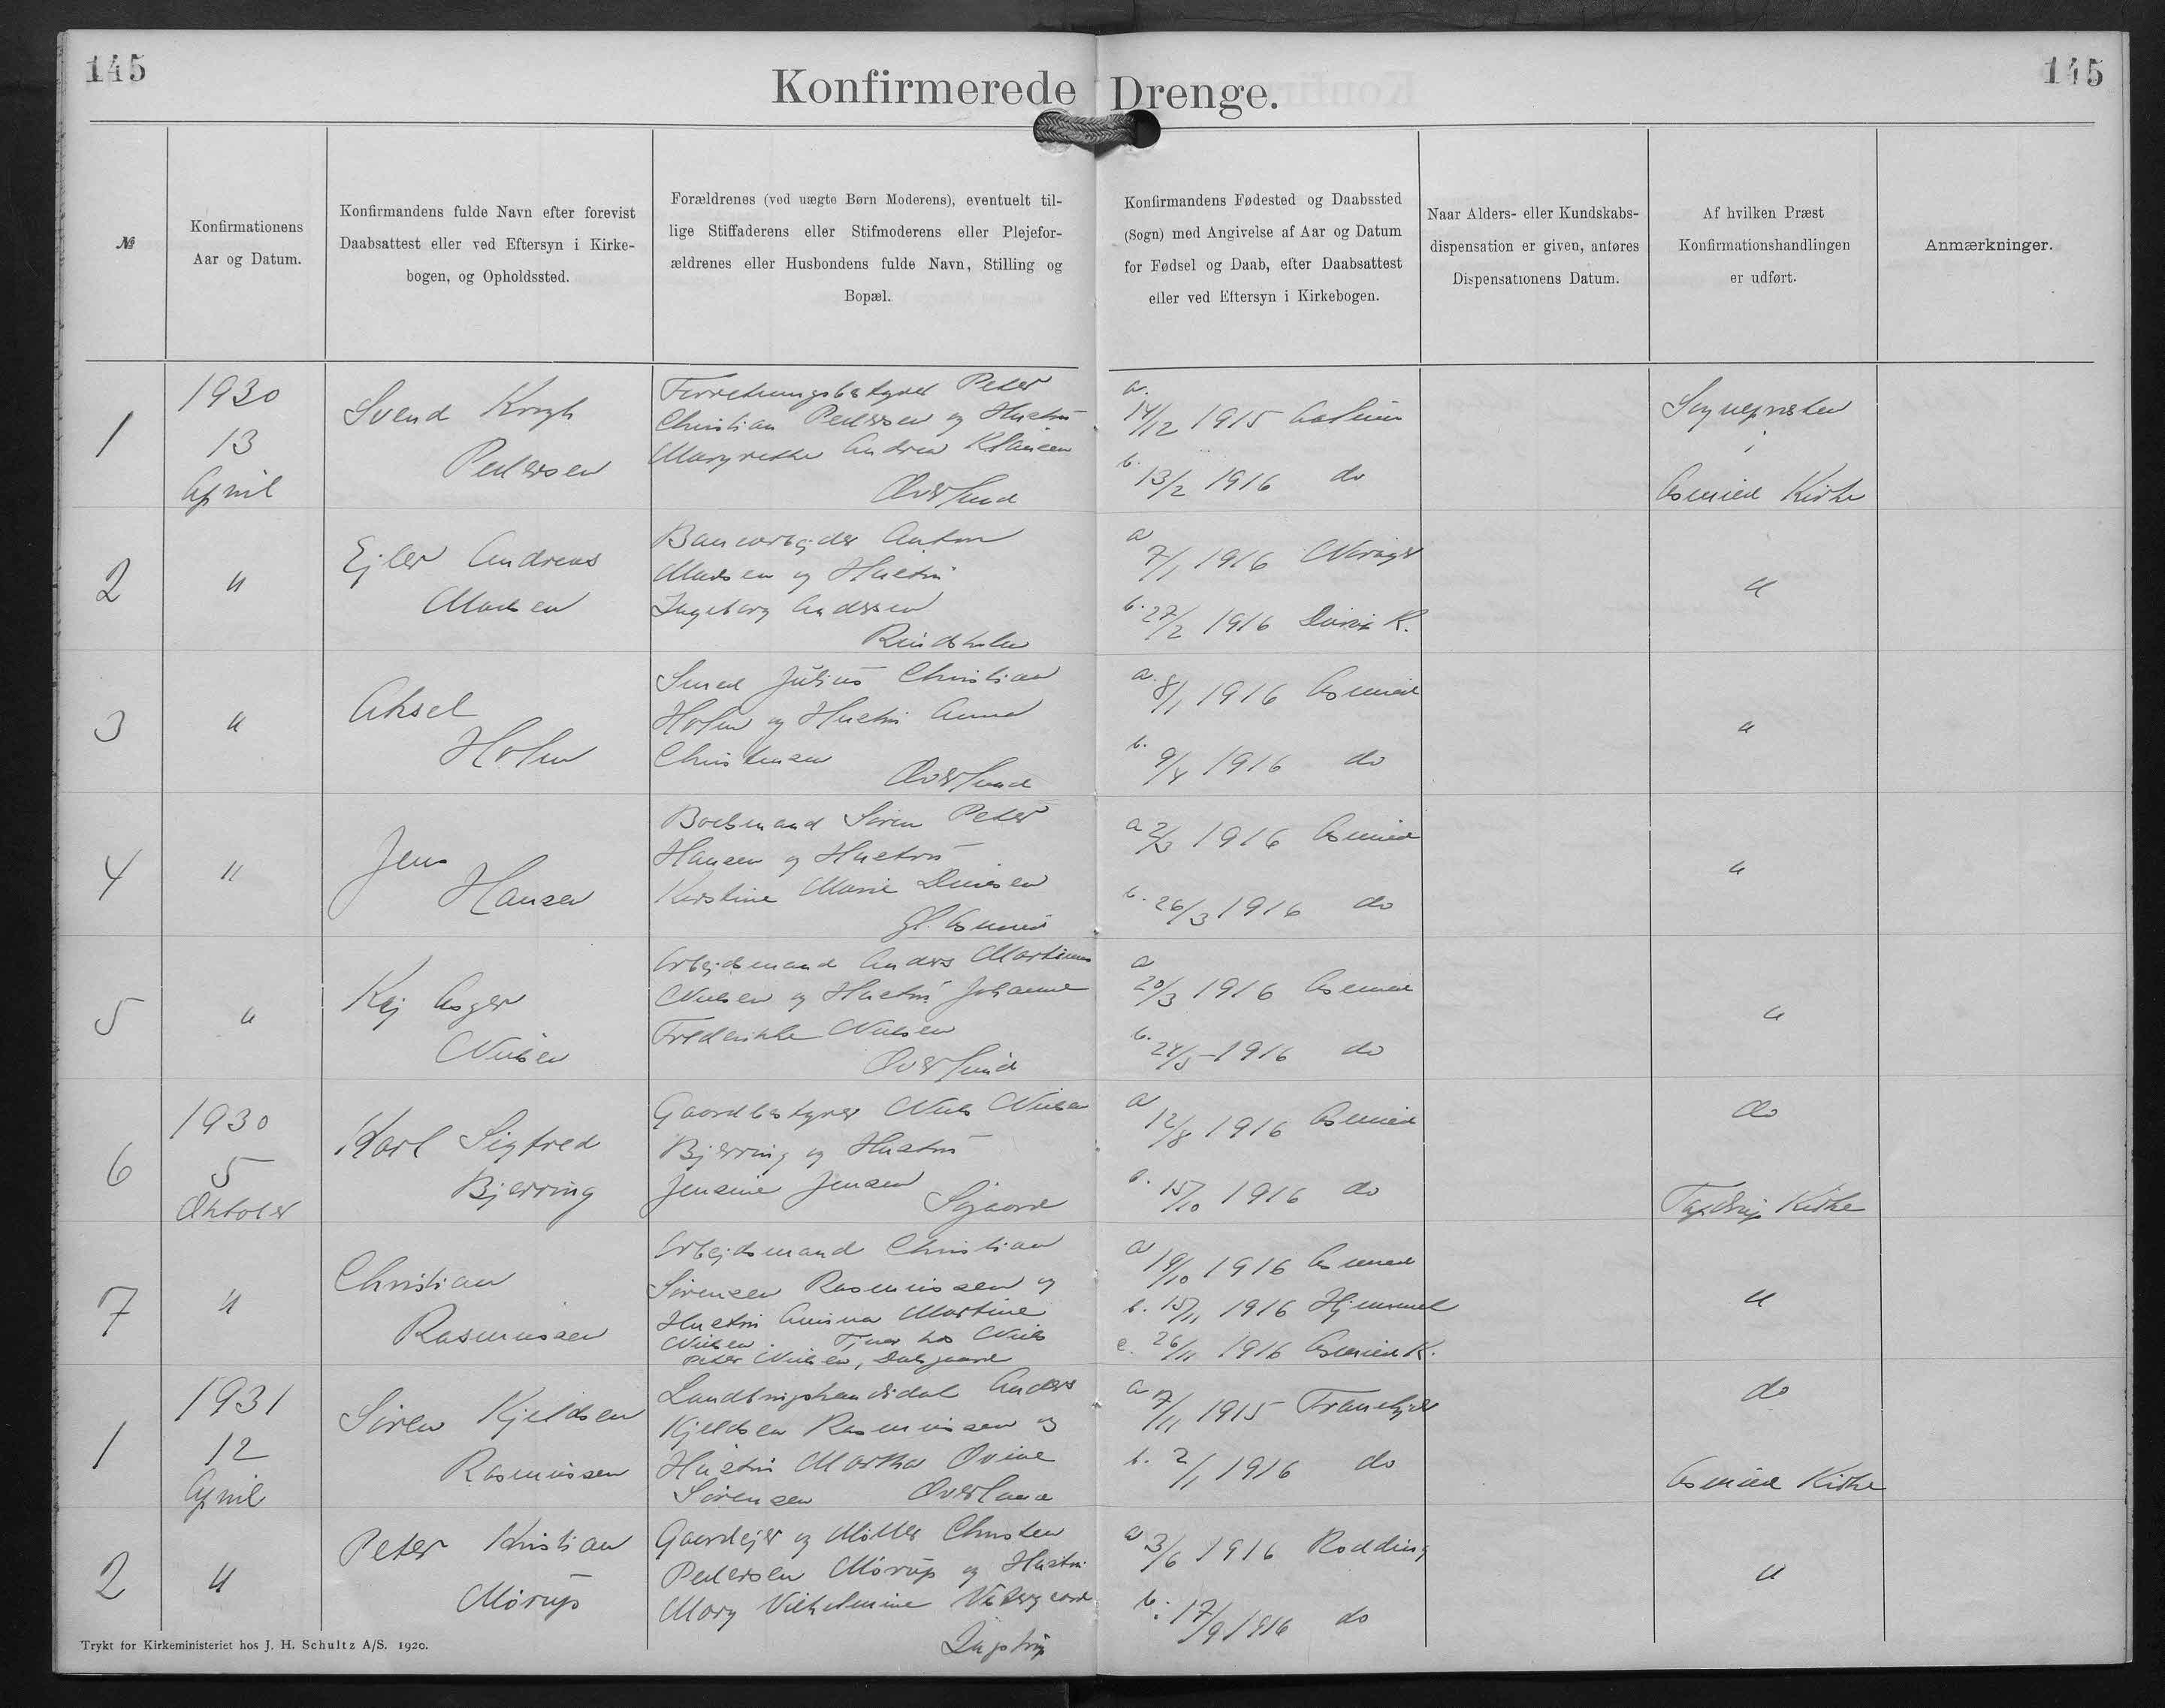 145
145
Konfirmerede Drenge.
№
Konfirmationens
Aar og Datum.
Konfirmandens fulde Navn efter forevist
Daabsattest eller ved Eftersyn i Kirke-
bogen, og Opholdssted.
Forældrenes (ved uægte Børn Moderens), eventuelt til-
lige Stiffaderens eller Stifmoderens eller Plejefor-
ældrenes eller Husbondens fulde Navn, Stilling og
Bopæl.
Konfirmandens Fødested og Daabssted
(Sogn) med Angivelse af Aar og Datum
for Fødsel og Daab, efter Daabsattest
eller ved Eftersyn i Kirkebogen.
Naar Alders- eller Kundskabs-
dispensation er given, anføres
Dispensationens Datum.
Af hvilken Præst
Konfirmationshandlingen
er udført.
Anmærkninger.
1
1930
13
April
Svend Krogh
Pedersen
Forretningsbestyrer Peter
Christian Pedersen og Hustru
Margrethe Andrea Klausen
Øverlund
a.
14/12 1915
b.
13/2 1916 do
Sognepræsten
i
Asmild Kirke
2
"
Ejler Andreas
Madsen
Banearbejder Anton
Madsen og Hustru
Ingeborg Andersen
Rindsholm
a
7/1 1916
b. 27/2 1916 K.
"
3
"
Aksel
Holm
Smed Julius Christian
Holm og Hustru Anna
Christensen
Øverlund
a. 8/1 1916 Asmild
b.
9/4 1916 do
"
4
"
Jens
Hansen
Boelsmand Søren Peter
Hansen og Hustru
Kirstine Marie Dinesen
Gl. Asmild
a 2/3 1916 Asmild
b. 26/3 1916 do
"
5
"
Kaj Asger
Nielsen
Arbejdsmand Anders Martinus
Nielsen og Hustru Johanne
Frederikke Nielsen
Øverlund
a
20/3 1916 Asmild
b.
24/5 1916 do
"
6
1930
5
Oktober
Karl Sigfred
Bjerring
Gaardbestyrer Niels Nielsen
Bjerring og Hustru
Jensine Jensen
Sigaard
a
12/8 1916 Asmild
b. 15/10 1916 do
do
Tapdrup Kirke
7
"
Christian
Rasmussen
Arbejdsmand Christian
Sørensen Rasmussen og
Hustru Martine
Nielsen. Tjener hos Niels
Peter Nielsen,
a
19/10 1916 Asmild
b. 15/11 1916 Hjemmet
c. 26/11 1916 Asmild K.
"
1
1931
12
April
Søren Kjeldsen
Rasmussen
Landbrugskandidat Anders
Kjeldsen Rasmussen og
Hustru Martha Ovine
Sørensen Øverlund
a 7/11 1915
b. 2/1 1916 do
do
Asmild Kirke
2
"
Peter Kristian
Mørup
Gaardejer og Møller Christen
Pedersen Mørup og Hustru
Mary Vilhelmine Vestergaard
Ingstrup
a 3/6 1916 Rødding
b. 17/9 1916 do
"
Trykt for Kirkeministeriet hos J. H. Schultz A/S. 1920.